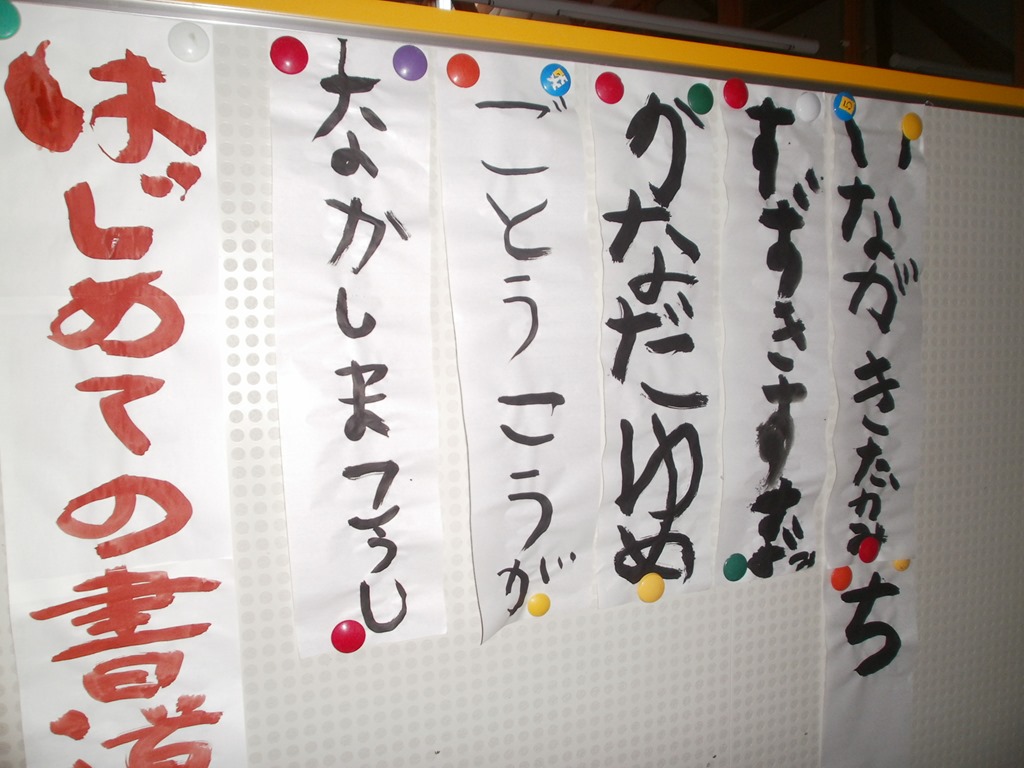 はじめての書道
いながきたかみち
すずきすず
かなだゆめ
ごとうこうが
なかしまこうし